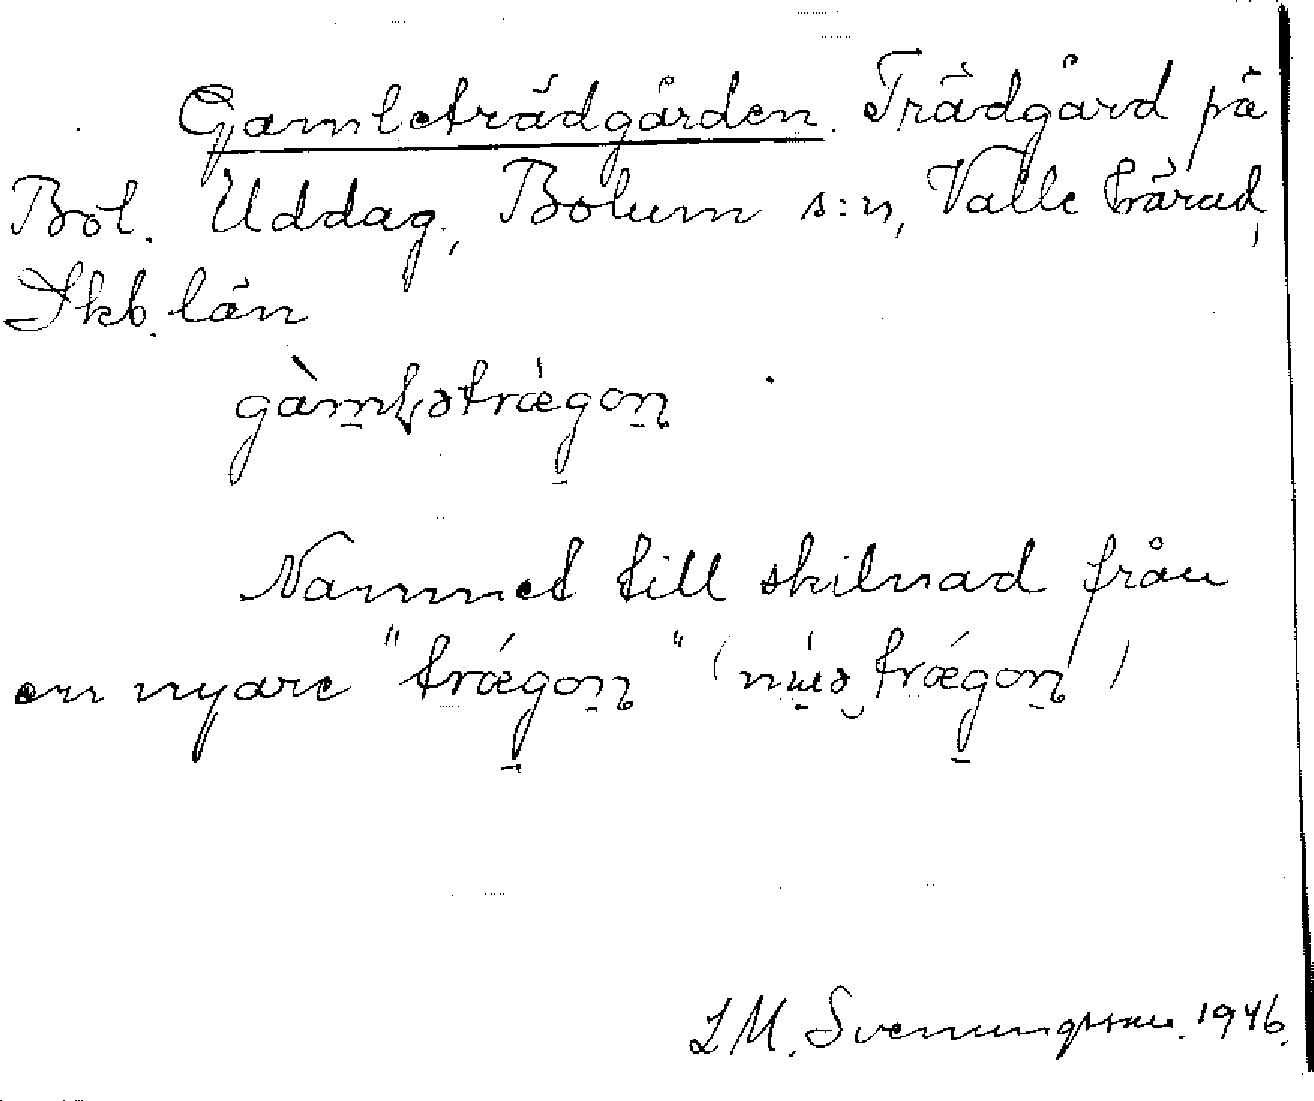 Gamleträdgården. Trädgård på
Bol. Uddag., Bolum s:n, Valle härad,
Skb. län
gàmḷətrǽgon̥
Namnet till skilnad från
en nyare "trǽgon̥" (nʉ́ə trǽgon̥)
L M. Svenungsson. 1946.